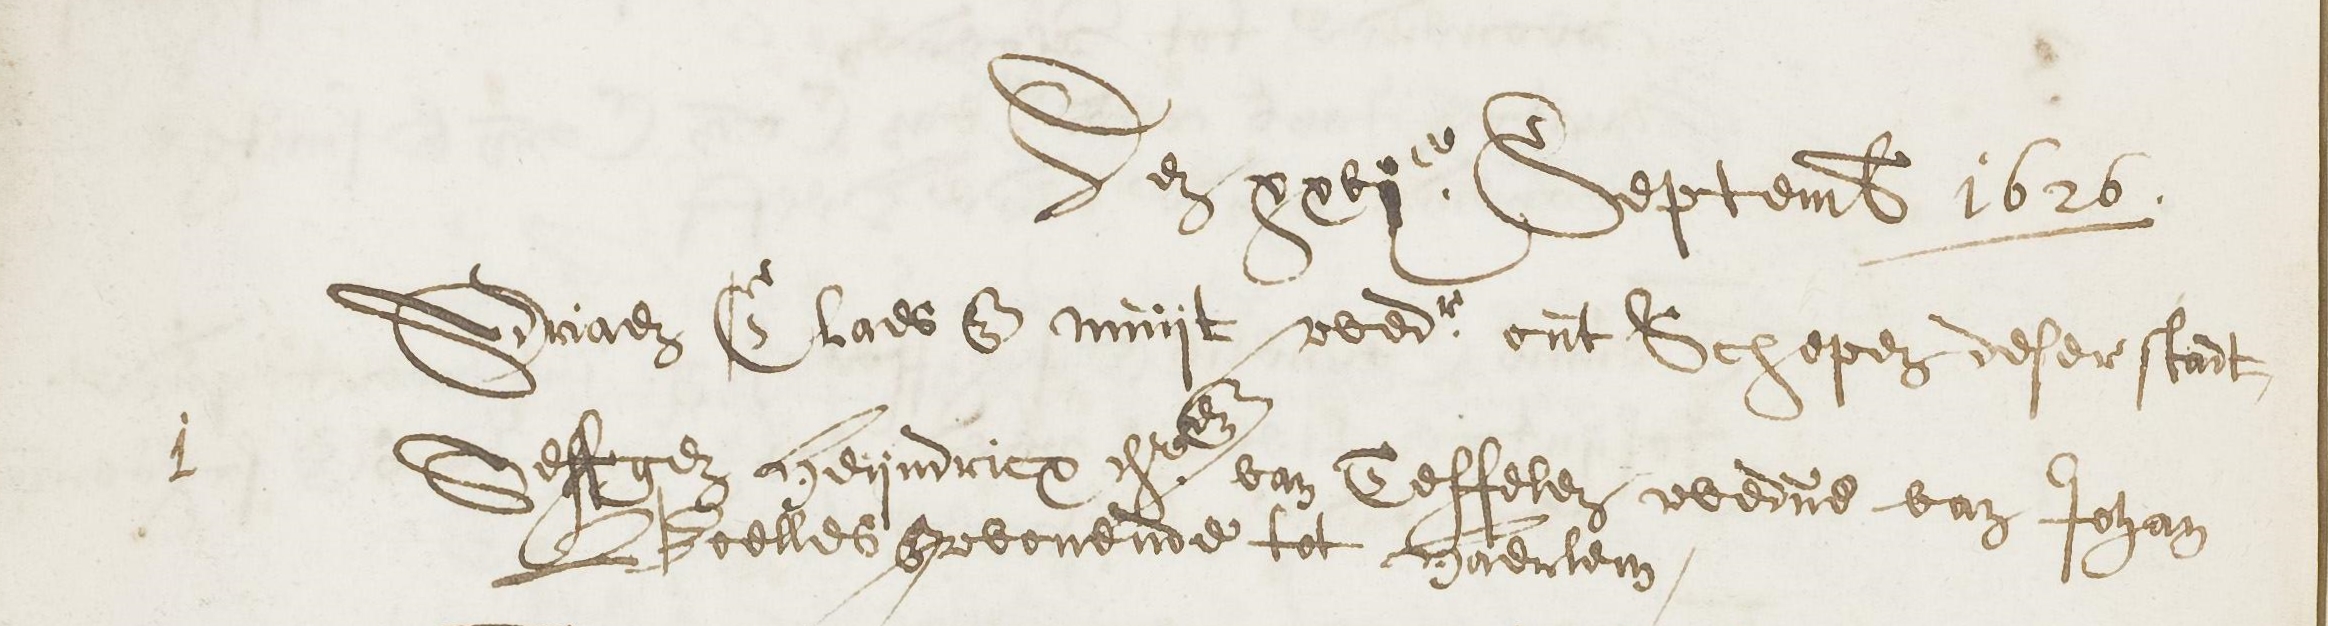 Den xxvj.en Septemb 1626.
Adriaen Claesz muijt wedr. out Schepen deser stadt,
1 Aeffgen Heijndricx dr. van Teffelen weduwe van Johan
Poelles gewonende tot Haerlem,